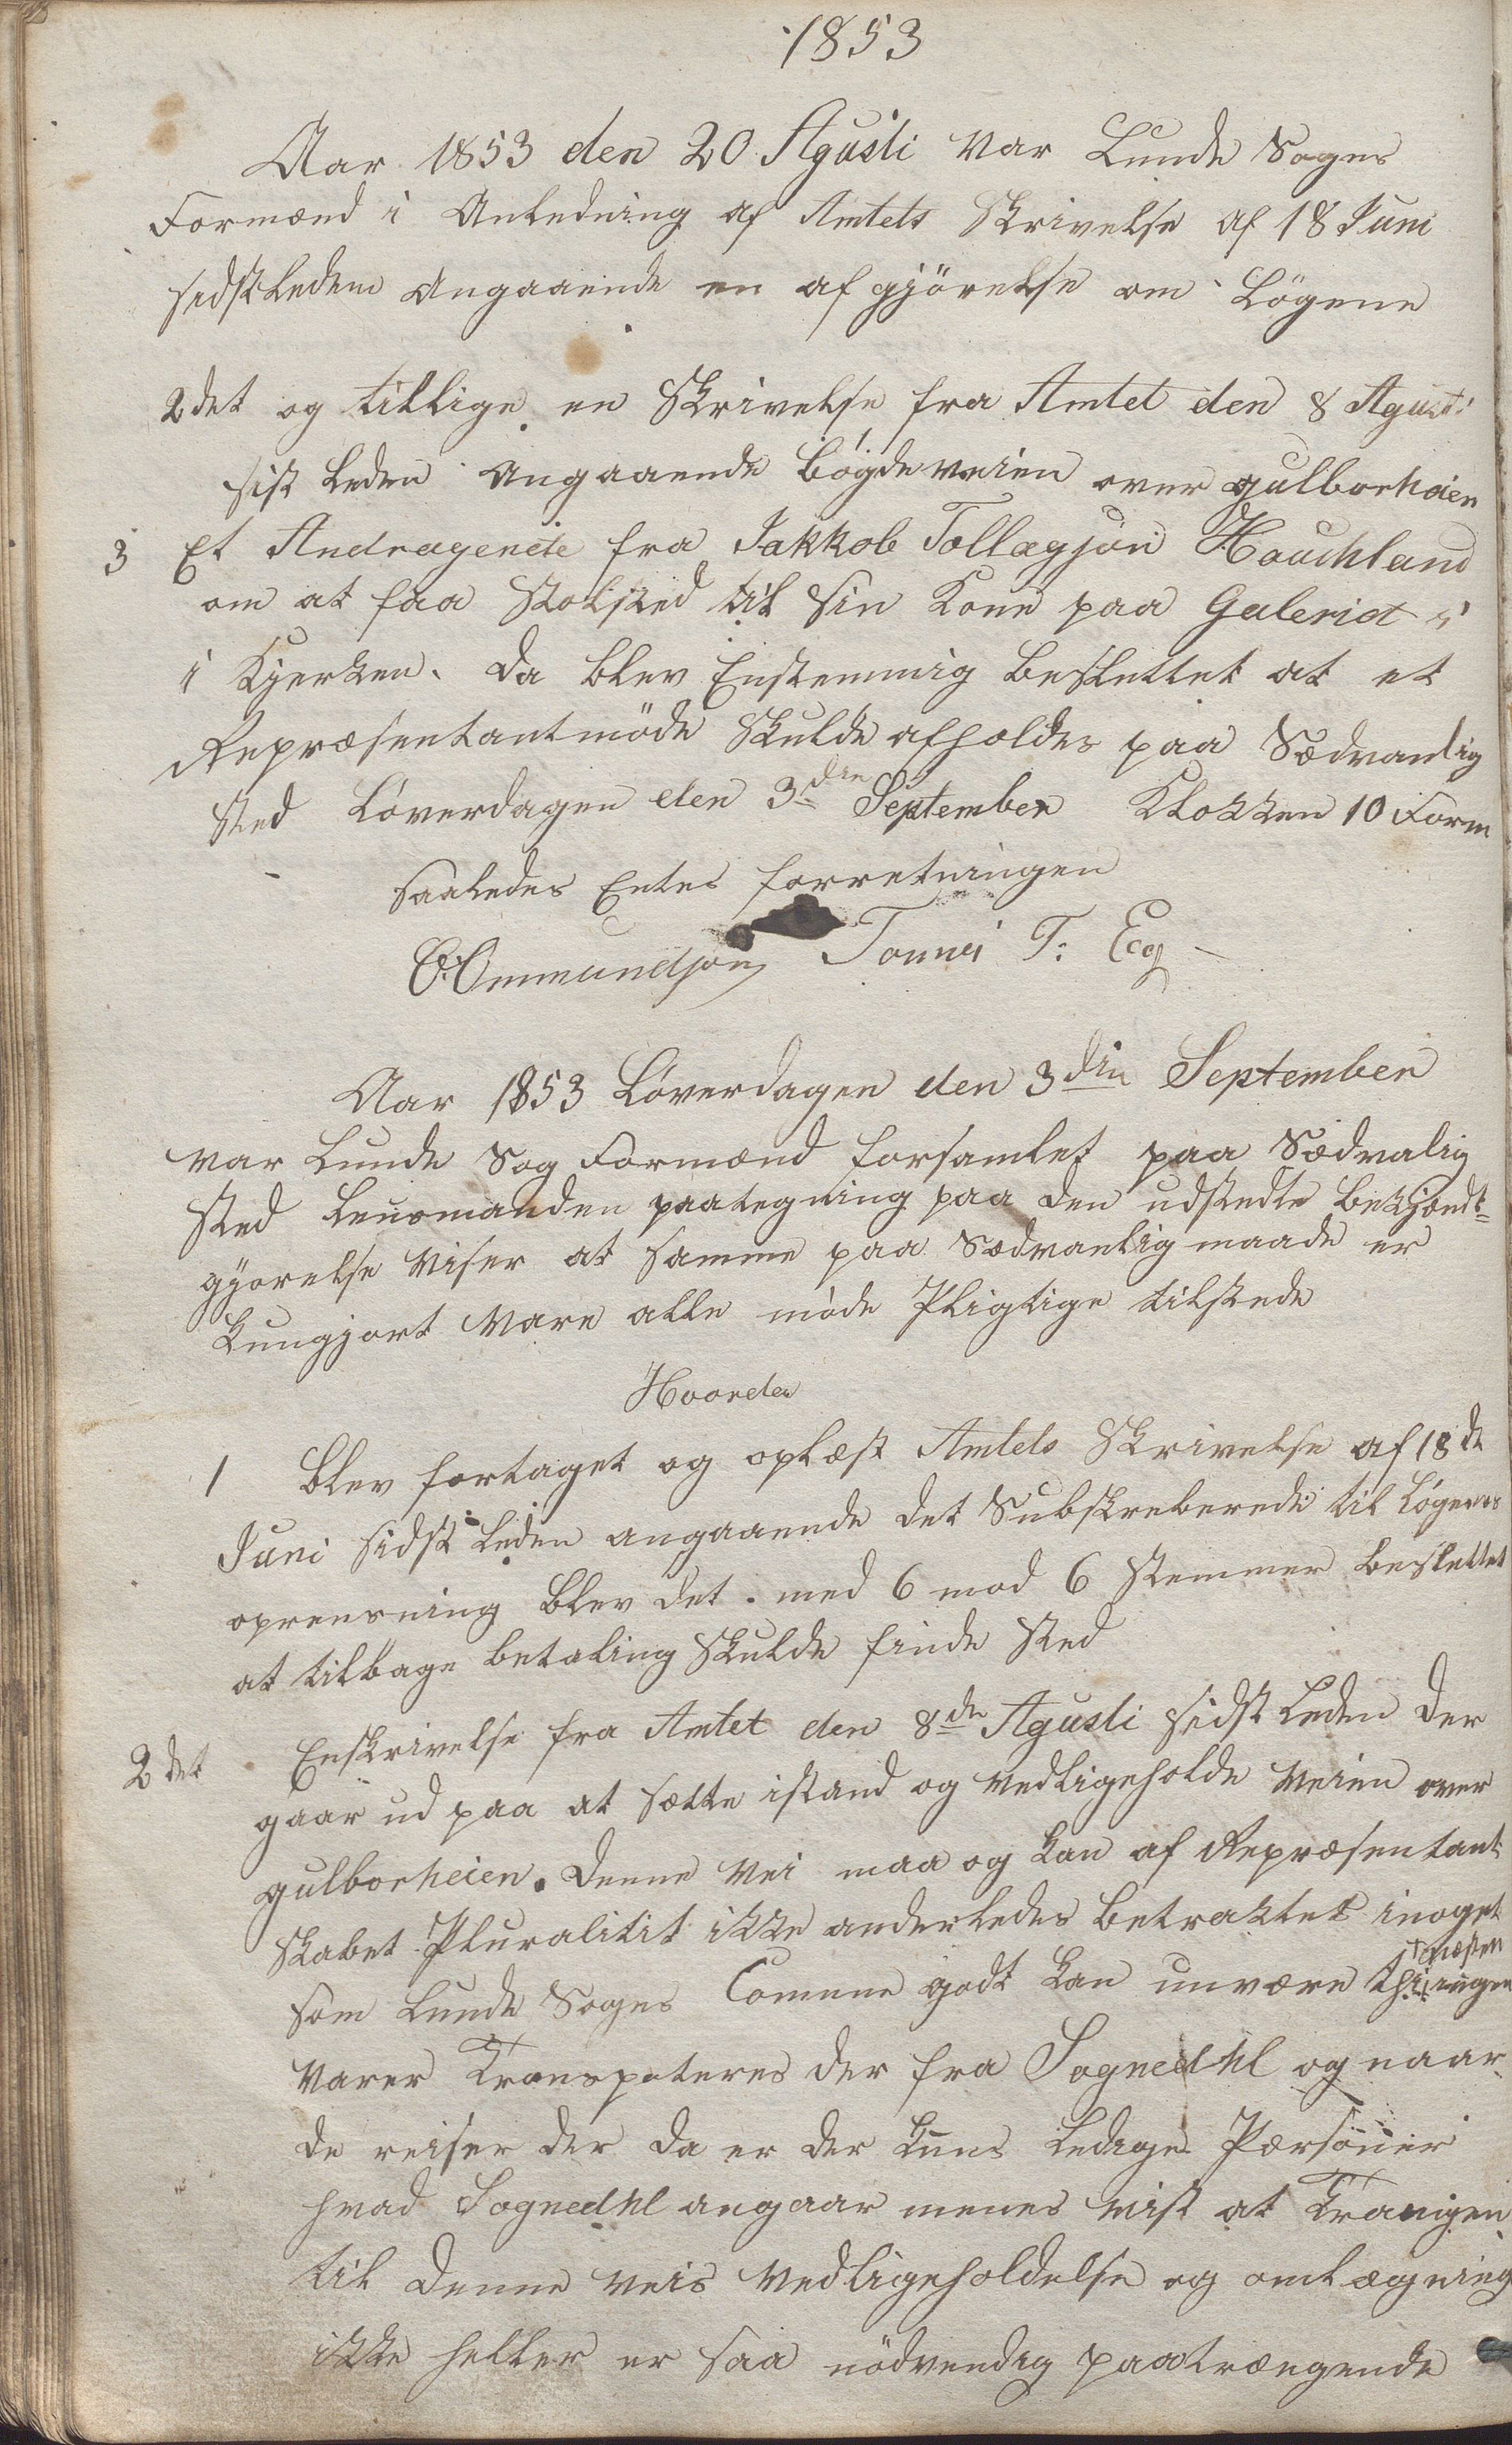 1853
Aar 1853 den 20 Agusti var Lunde Sogns
Formænd i Anledning af Amtets Skrivelse af 18 Juni
sidstleden Angaaende en afgjörelse om Lögene
2det og tillige en Skrivelse fra Amtet den 8 Agusti
sist leden Angaaende bögdeveien over gulborheien
3 Et Andragende fra Jakkob Tollagsøn Hauchland
om at faa Stolsted til sin Kone paa Galeriet i
i Kjerken. Da blev Enstemmig beslettet at et
Repræsentantmöde Skulde afholdes paa Sædvanlig
sted Löverdagen den 3die September Klokken 10 Form
saaledes Entes forretningen
O. Ommundsøn Tonnes T. Eeg
Aar 1853 Löverdagen den 3die September
var Lunde Sog Formænd forsamlet paa Sædvalig
sted Lensmanden paategning paa den udstedte bekjendt=
gjørelse viser at samme paa Sædvanlig maade er
kungjort Vare alle möde Pligtige tilstede
Hvorda
1 blev fortaget og oplæst Amtets Skrivelse af 18de
Juni sidst leden angaaende det Subskreberede til Lögenes
oprensning blev det med 6 mod 6 Stemmer beslettet
at tilbage betaling skulde finde sted
2det Enskrivelse fra Amtet den 8de Agusti sidst leden der
gaar ud paa at sætte istand og vedligeholde veien over
gulborheien. Denne vei maa og kan af Repræsentant
skabet Pluralitit ikke anderledes betraktes inoget
som Lunde Sogns Comune godt kan unvære thi næsten ingen
varer Transpoteres der fra Sognedal og naar
de reiser der da er der kuns ledige Pærsoner
hvad Sognedal angaar menes vist at Trangen
til denne veis vedligeholdelse og omlægning
ikke heller er saa nödvendig paatrængende